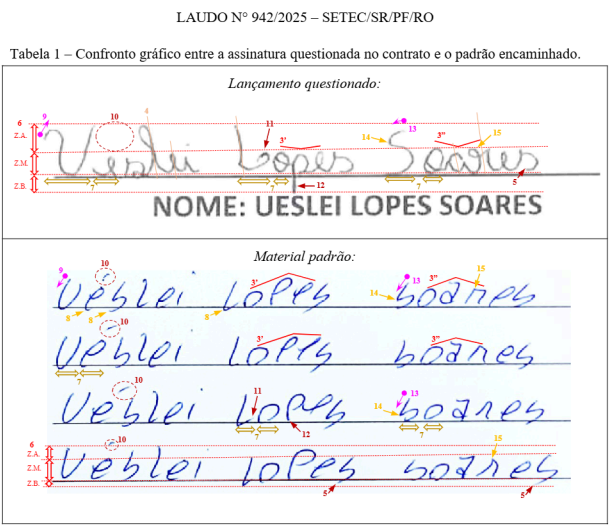 LAUDO N° 942/2025 – SETEC/SR/PF/RO
Tabela 1 – Confronto gráfico entre a assinatura questionada no contrato e o padrão encaminhado.
Lançamento questionado:
6 9 10 4 11 3' 14 13 3" 15
Z.A.
Z.M.
Z.B.
Ueslei Lopes Soares
7 7 12 7 5
NOME: UESLEI LOPES SOARES
Material padrão:
9 10 3' 13 3" 15
Uéslei Lopes soares
8 8 8 14
10 3' 3"
Uéslei Lopes soares
7
10 11 14 13
Uéslei Lopes soares
7 12 7
6 10 15
Z.A.
Z.M.
Z.B.
Uéslei Lopes soares
5 5